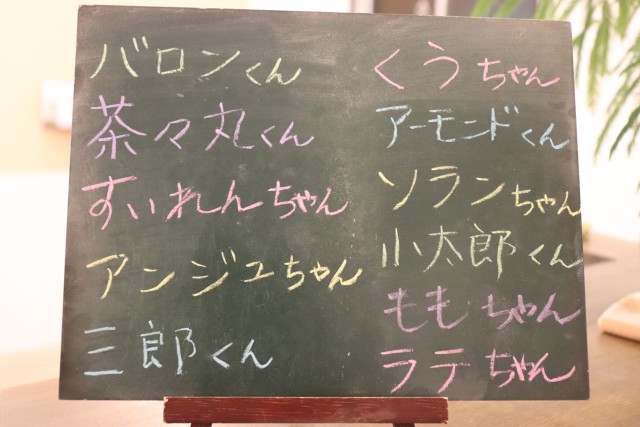 バロンくん
茶々丸くん
すいれんちゃん
アンジュちゃん
三郎くん
くうちゃん
アーモンドくん
ソランちゃん
小太郎くん
ももちゃん
ラテちゃん